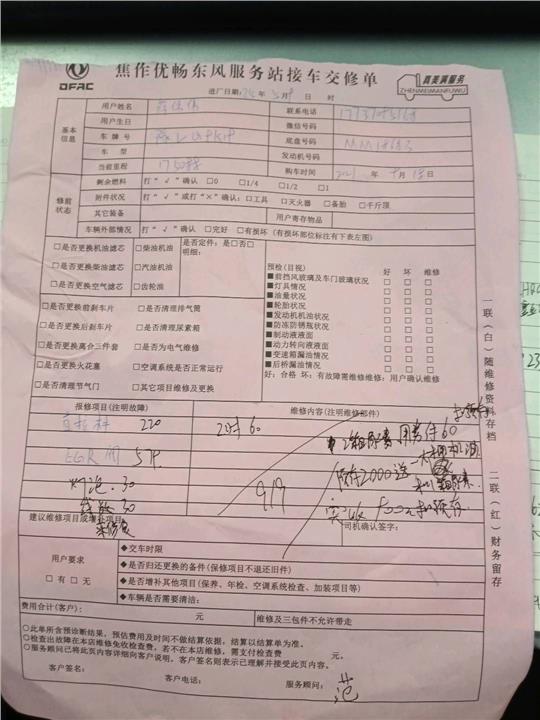 DFAC
焦作优畅东风服务站接车交修单
真美满服务
ZHENMEIMANFUWU
进厂日期: 年 月 日 时
基本信息
用户姓名
联系电话
用户生日
微信号码
车牌号
底盘号码
车型
发动机号码
当前里程
购车时间 2021 年 月 日
修前状态
剩余燃料 打“√”确认 □0 □1/4 □1/2 □1
附件状况 打“√”或打“×”确认: □工具 □灭火器 □备胎 □千斤顶
其它装备 用户寄存物品
车辆外部情况 打“√”确认 □完好 □有损坏 (有损坏部位标注有下表左图)
□是否更换机油滤芯 □柴油机油 是否定件: 是□否□
□是否更换柴油滤芯 □汽油机油 明细:
□是否更换空气滤芯 □齿轮油
□是否更换前刹车片 □是否清理排气筒
□是否更换后刹车片 □是否清理尿素箱
□是否更换离合三件套 □是否为电气维修
□是否更换火花塞 □空调系统是否正常运行
□是否清理节气门 □其它项目维修及更换
预检(目视) 好 坏 维修
■前挡风玻璃及车门玻璃状况 □ □ □
■灯具情况 □ □ □
■油量状况 □ □ □
■轮胎状况 □ □ □
■发动机机油状况 □ □ □
■防冻防锈瓶状况 □ □ □
■制动液液面 □ □ □
■动力转向液液面 □ □ □
■变速箱漏油情况 □ □ □
■后桥漏油情况 □ □ □
好: 合格 坏: 有故障需维修维修: 用户确认维修
报修项目(注明故障) 维修内容(注明维修部件)
直拉杆 220 工时 60
EGR阀 579
灯泡. 30
30
919
预存2000送一
建议维修项目或增补项目:
司机确认签字:
用户要求
□有 □无
◆交车时限
◆是否归还更换的备件(保修项目不退还旧件)
◆是否增补其他项目(保养、年检、空调系统检查、加装项目等)
◆车辆是否需要清洁:
费用合计(客户): 元 维修及三包件不允许带走
○此单所含预诊断结果,预估费用及时间不做结算依据,结算以结算单为准。
○检查出故障在本店维修免收检查费,若不在本店维修,需支付检查费 元。
○服务顾问已将此页内容详细向客户说明。客户签名则表示已理解并接受此页内容。
客户签名: 客户电话: 服务顾问: 范
一联(白)随维修资料存档
二联(红)财务留存